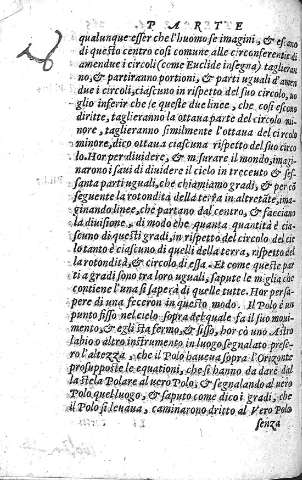 PARTE
qualunque esser che l'huomo se imagini, & escano
di questo centro cosi comune alle circonferentie di
amendue i circoli (come Euclide insegna) taglieran
no, & partiranno portioni, & parti uguali d'amen
due i circoli, ciascuno in rispetto del suo circolo, uo
glio inferir che se queste due linee, che cosi escono
diritte, taglieranno la ottaua parte del circolo mi-
nore, taglieranno similmente l'ottaua del circolo
minore, dico ottaua ciascuna rispetto del suo circo
lo. Hor per diuidere, & misurare il mondo, imagi-
narono i saui di diuidere il cielo in trecento & ses-
santa parti uguali, che chiamiamo gradi, & per cō
seguente la rotondità della terra in altretāte, ima
ginando linee, che partano dal centro, & facciano
la diuisione, di modo che quanta quantità è cia-
scuno di questi gradi, in rispetto del circolo del cie
lo tanto è ciascuno di quelli della terra, rispetto del
la rotondità, & circolo di essa. Et come queste par
ti a gradi sono tra loro uguali, sapute le miglia che
contiene l'una si saperà di quelle tutte. Hor per sa-
pere di una fecero in questo modo. Il Polo è un
punto fisso nel cielo sopra del quale fa il suo moui-
mento, & egli sta fermo, & fisso, hor cō uno Astro
labio o altro instrumento in luogo segnalato prese-
ro l'altezza, che il Polo haueua sopra l'Orizonte
prosupposte le equationi, che si hanno da dare dal
la stela Polare al uero Polo, & segnalando al uero
Polo quel luogo, & saputo come dico i gradi, che
il Polo si leuaua, caminarono dritto al Vero Polo
senza